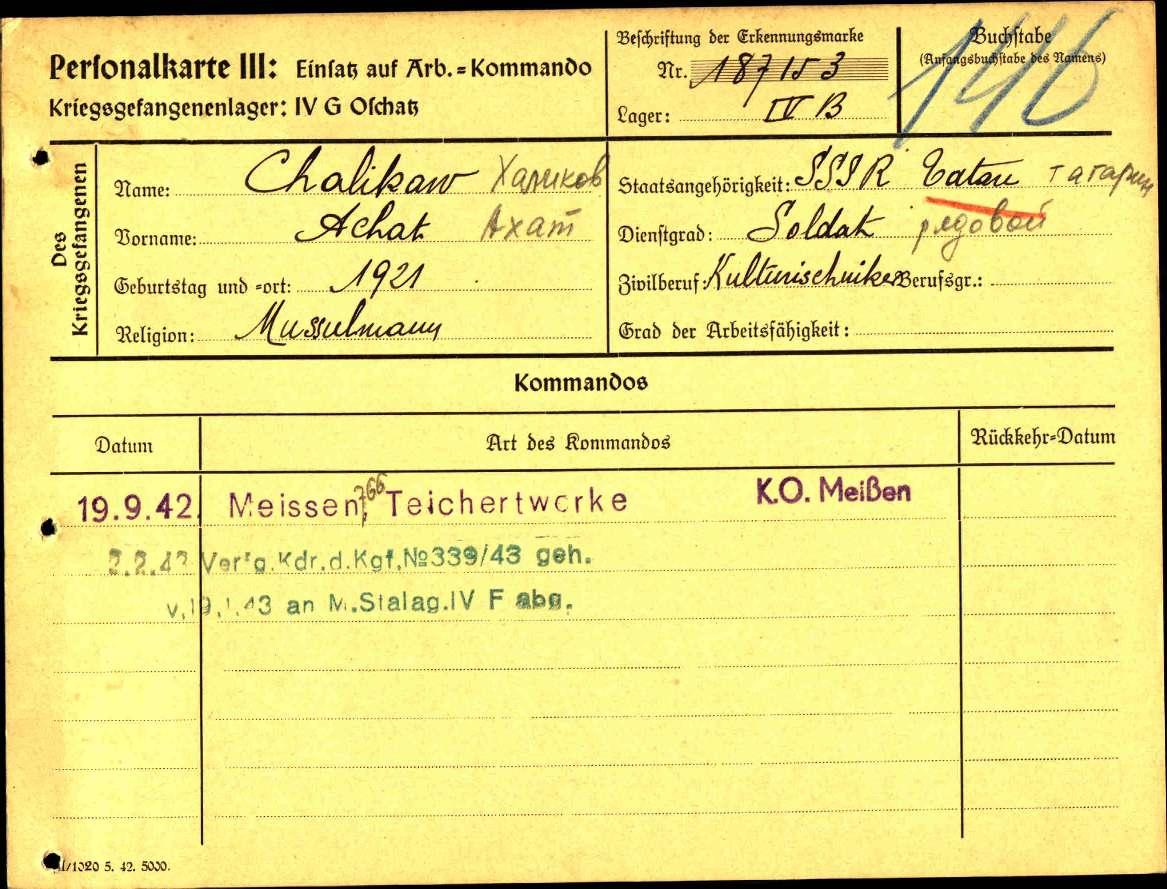 Personalkarte III: Einsatz auf Arb.=Kommando
Kriegsgefangenenlager: IV G Oschatz
Beschriftung der Erkennungsmarke
Nr. 187153
Lager: IV B
Buchstabe
(Anfangsbuchstabe des Namens)
146
Des Kriegsgefangenen
Name: Chalikaw Халиков
Vorname: Achat Ахат
Geburtstag und =ort: 1921
Religion: Musselmann
Staatsangehörigkeit: SSSR Tatar татарин
Dienstgrad: Soldat рядовой
Zivilberuf: Berufsgr.:
Grad der Arbeitsfähigkeit:
Kommandos
Datum Art des Kommandos Rückkehr=Datum
19.9.42. Meissen, 766 Teichertwerke K.O. Meißen
2.2.43 Verfg.Kdr.d.Kgf.№339/43 geh.
v.19.1.43 an M.Stalag.IV F abg.
/1020 5. 42. 5000.